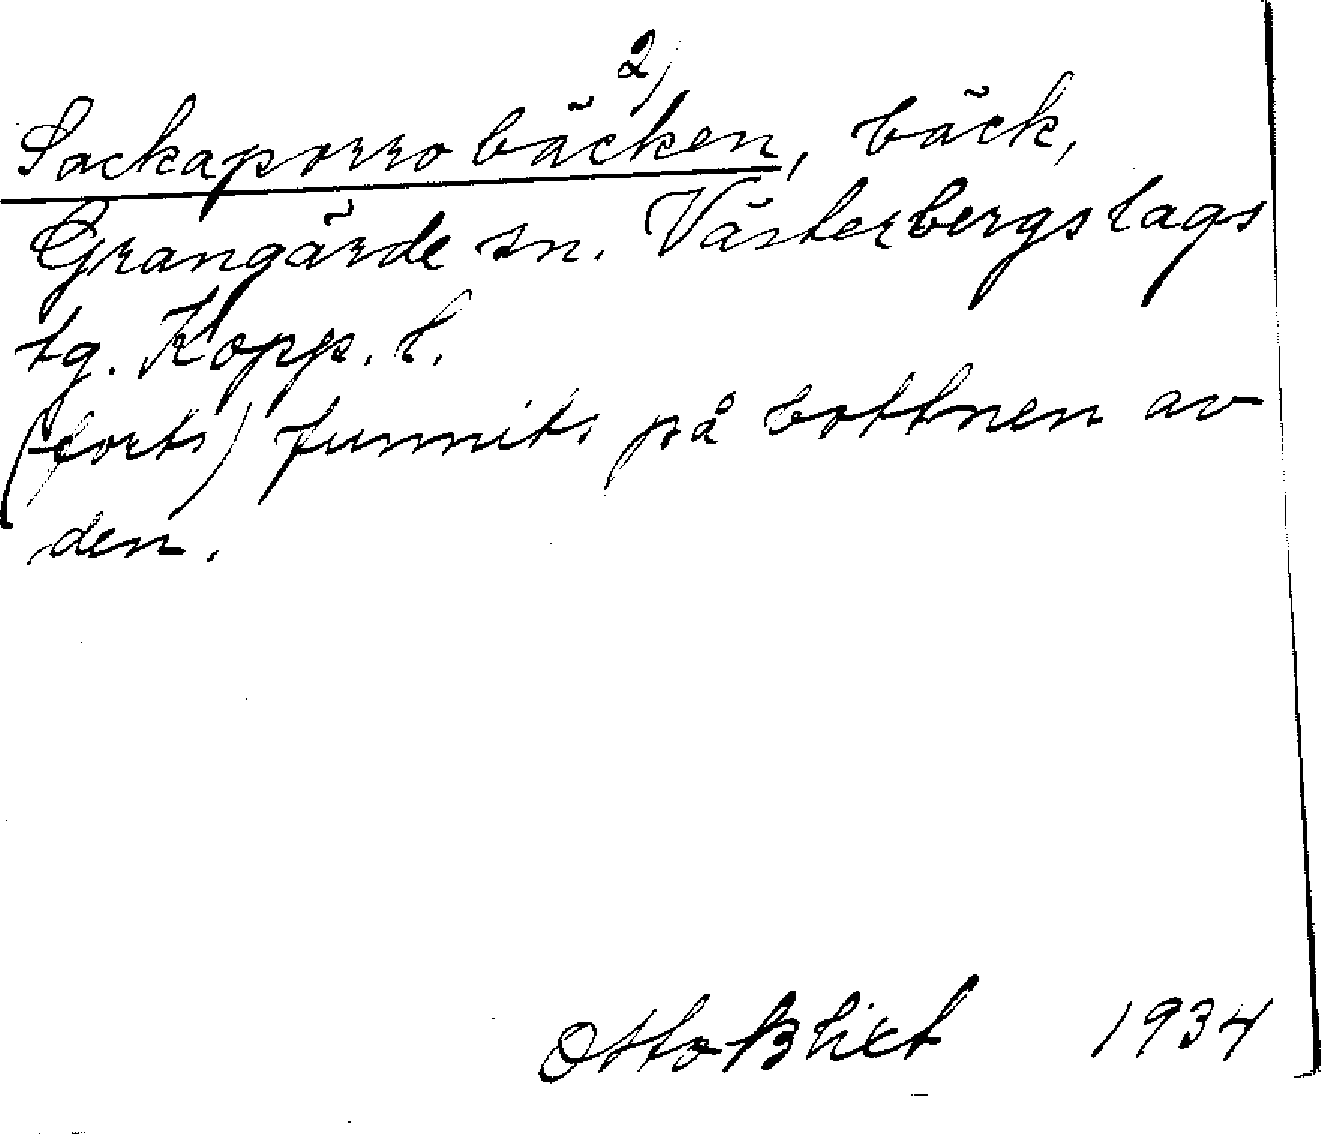 2)
Sackaporrobäcken, bäck,
Grangärde sn. Västerbergslags
tg. Kopp. l.
(forts) funnits på bottnen av
den.
Otto Blixt 1934